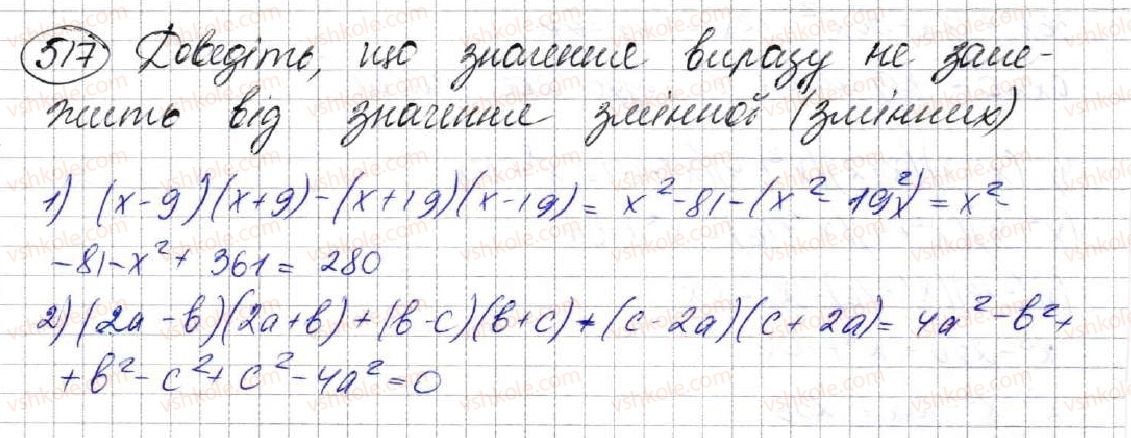 517 Доведіть, що значення виразу не зале-
жить від значення змінної (змінних)
1) (x-9)(x+9)-(x+19)(x-19)= x²-81-(x²-19²)=x²-
-81-x²+361=280
2)(2a-b)(2a+b)+(b-c)(b+c)+(c-2a)(c+2a)=4a²-b²+
+b²-c²+c²-4a²=0